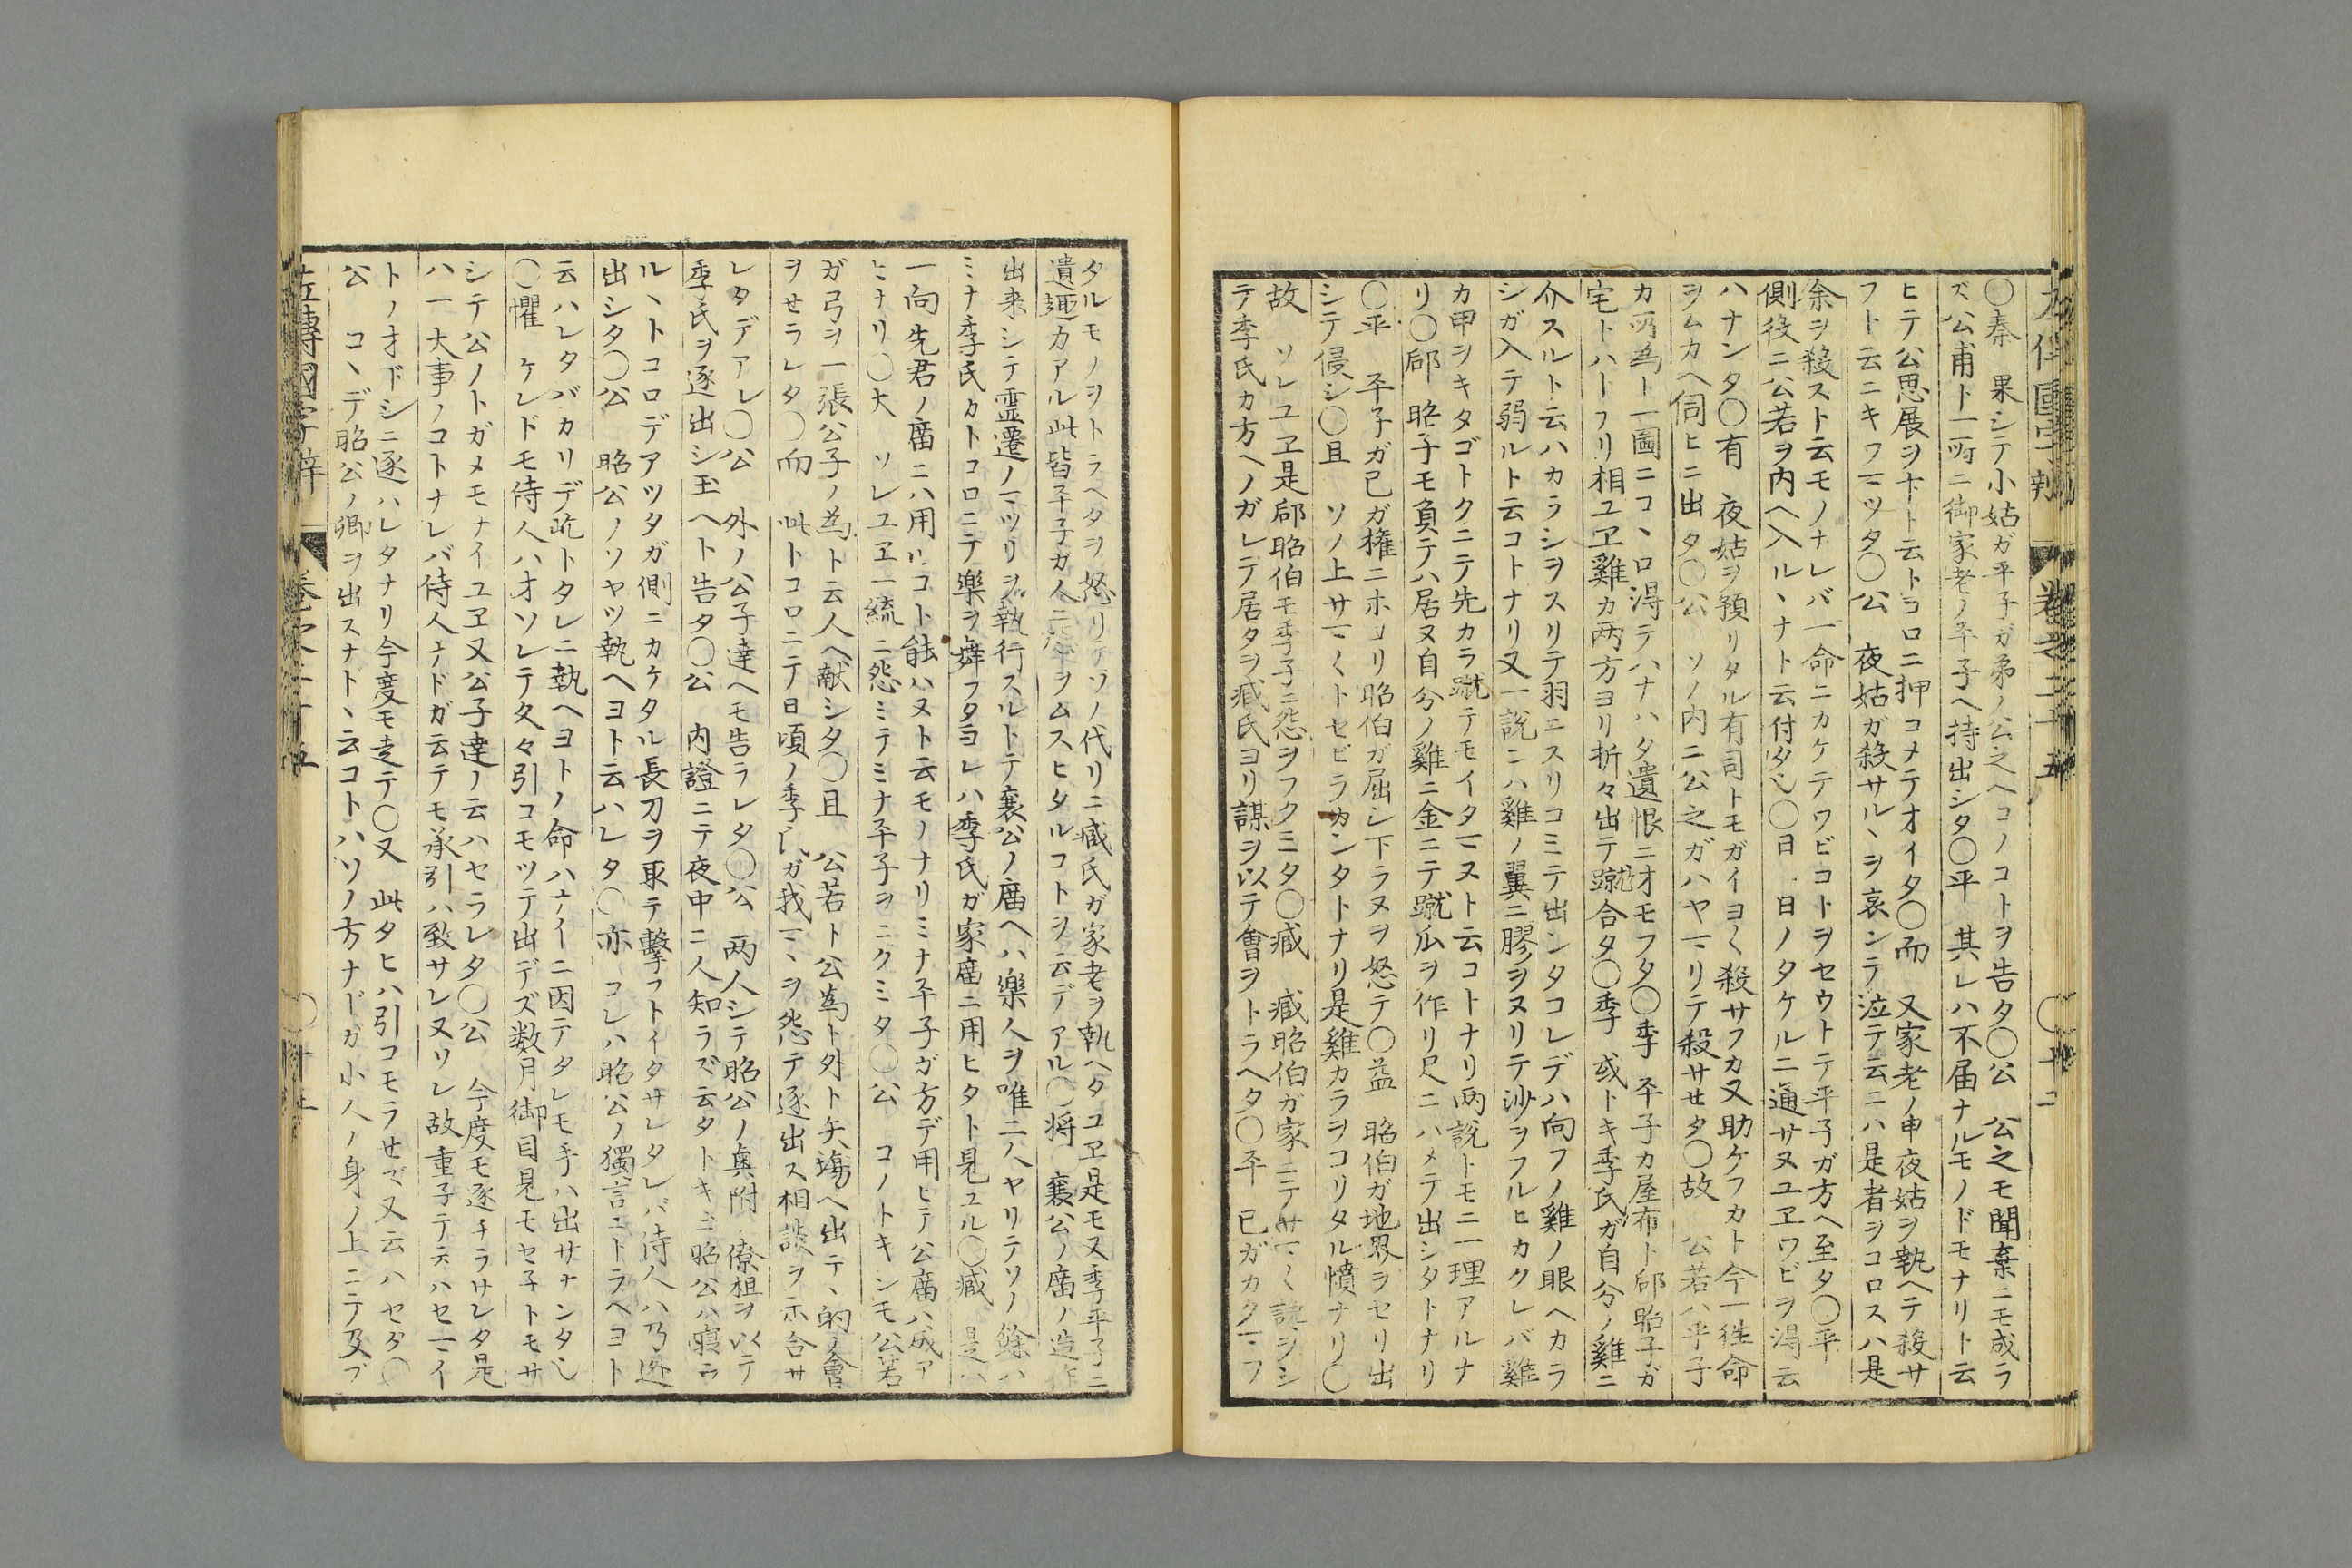 左傳國字辨 巻之二十五 〇十二
〇秦 果シテ小姑ガ平子ガ弟ノ公之ヘコノコトヲ告タ〇公 公之モ聞棄ニモ成ラ
ズ公甫ト一所ニ御家老ノ平子ヘ持出シタ〇平 其レハ不届ナルモノドモナリト云
ヒテ公思展ヲ卞ト云トコロニ押コメテオイタ〇而 又家老ノ申夜姑ヲ執ヘテ殺サ
フト云ニキワマツタ〇公 夜姑ガ殺サル丶ヲ哀ンテ泣テ云ニハ是者ヲコロスハ是
余ヲ殺スト云モノナレバ一命ニカケテワビコトヲセウトテ平子ガ方ヘ至タ〇平
側役ニ公若ヲ内ヘ入ル丶ナト云付タ〇日 日ノタケルニ通サヌユヱワビヲ得云
ハナンタ〇有 夜姑ヲ預リタル有司トモガイヨ〱殺サフカ又助ケフカト今一徃命
ヲムカヘ伺ヒニ出タ〇公 ソノ内ニ公之ガハヤマリテ殺サセタ〇故 公若ハ平子
カ所為ト一圖ニコ丶ロ得テハナハタ遺恨ニオモフタ〇季 平子カ屋布ト郈昭子ガ
宅トハトフリ相ユヱ雞カ两方ヨリ折々出テ蹴合タ〇季 或トキ季氏ガ自分ノ雞ニ
介スルト云ハカラシヲスリテ羽ニスリコミテ出ンタコレデハ向フノ雞ノ眼ヘカラ
シガ入テ弱ルト云コトナリ又一說ニハ雞ノ翼ニ膠ヲヌリテ沙ヲフルヒカクレバ雞
カ甲ヲキタゴトクニテ先カラ蹴テモイタマヌト云コトナリ两說トモニ一理アルナ
リ〇郈 昭子モ負テハ居ヌ自分ノ雞ニ金ニテ蹴爪ヲ作リ尺ニハメテ出シタトナリ
〇平 平子ガ己ガ権ニホコリ昭伯ガ屈シ下ラヌヲ怒テ〇益 昭伯ガ地界ヲセリ出
シテ侵シ〇且 ソノ上サマ〱トセビラカンタトナリ是雞カラヲコリタル憤ナリ〇
故 ソレユヱ是郈昭伯モ季子ニ怨ヲフクミタ〇臧 臧昭伯ガ家ニテサマ〱讒ヲシ
テ季氏カ方ヘノガレテ居タヲ臧氏ヨリ謀ヲ以テ會ヲトラヘタ〇平 己ガカクマフ
タルモノヲトラヘタヲ怒リテソノ代リニ臧氏ガ家老ヲ執ヘタユヱ是モ又季平子ニ
遺趣カアル此皆平子ガ人ニ怨ヲムスヒタルコトヲ云デアル〇将 襄公ノ庿ノ造作
出来シテ霊遷ノマツリヲ執行スルトテ襄公ノ庿ヘハ樂人ヲ唯二人ヤリテソノ餘ハ
ミナ季氏カトコロニテ樂ヲ舞フタヨレハ季氏ガ家庿ニ用ヒタト見ユル〇臧 是ハ
一向先君ノ庿ニハ用ルコト能ハヌト云モノナリミナ平子ガ方デ用ヒテ公庿ハ成ア
ヒナリ〇大 ソレユヱ一統ニ怨ミテミナ平子ヲニクミタ〇公 コノトキシモ公若
ガ弓ヲ一張公子ノ為ト云人ヘ献シタ〇且 公若ト公為ト外ト矢塲ヘ出テ丶的ノ會
ヲセラレタ〇而 此トコロニテ日頃ノ季氏ガ我マ丶ヲ怨テ逐出ス相談ヲ示合サ
レタデアレ〇公 外ノ公子達ヘモ告ラレタ〇公 两人シテ昭公ノ奥附 僚祖ヲ以テ
季氏ヲ逐出シ玉ヘト告タ〇公 内證ニテ夜中ニ人知ラズ云タトキニ昭公ハ寢ラ
ル丶トコロデアツタガ側ニカケタル長刀ヲ取テ擊フトイタサレタレバ侍人ハ乃迯
出シタ〇公 昭公ノソヤツ執ヘヨト云ハレタ〇亦 コレハ昭公ノ獨言ニトラヘヨト
云ハレタバカリデ屹トタレニ執ヘヨトノ命ハナイニ因テタレモ手ハ出サナンタ
〇懼 ケレドモ侍人ハオソレテ久々引コモツテ出デズ数月御目見モセ子トモサ
シテ公ノトガメモナイユヱ又公子達ノ云ハセラレタ〇公 今度モ逐チラサレタ是
ハ一大事ノコトナレバ侍人ナドガ云テモ承引ハ致サレヌソレ故重子テ云ハセマイ
トノオドシニ逐ハレタナリ今度モ走テ〇又 此タヒハ引コモラセズ又云ハセタ〇
公 コ丶デ昭公ノ卿ヲ出スナト丶云コトハソノ方ナドガ小人ノ身ノ上ニテ及ブ
左傳國字辨 巻之二十五